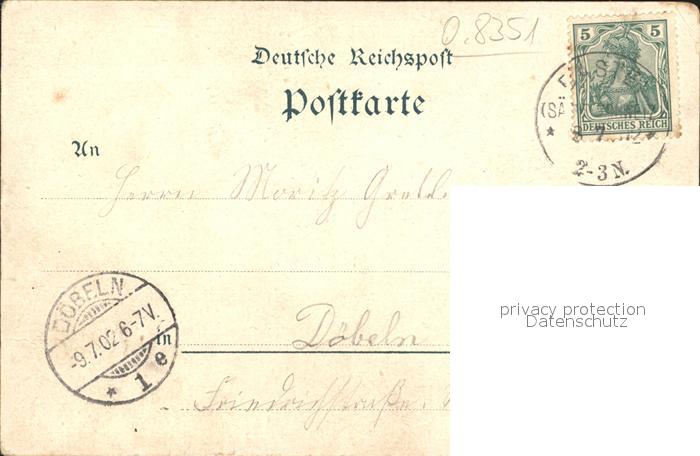 0.8351
Deutsche Reichspost
Postkarte
5 5
DEUTSCHES REICH
2-3 N.
An
Herrn Moritz
privacy protection
Datenschutz
DÖBELN
-9.7.02 6-7V.
* 1 e
in Döbeln
Friedrichstraße